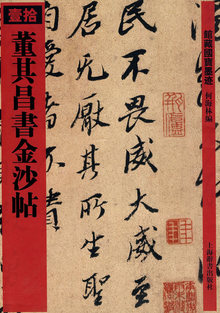 館藏國寶墨迹
何海林編
上海書店出版社
民不畏威大威至
居无厭其所生聖
不貴
拾壹
董其昌書金沙帖